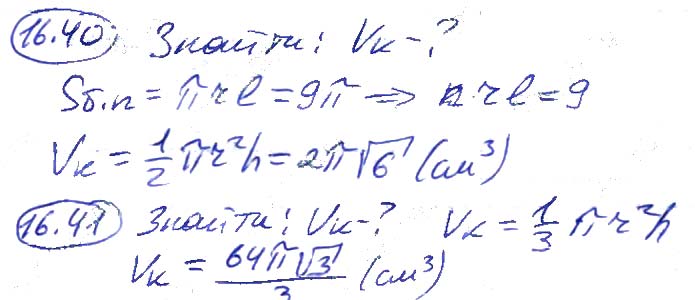 16.40 Знайти: Vк-?
Sб.п = πrl = 9π => rl = 9
Vк = 1/2 πr²h = 2π√6 (см³)
16.41 Знайти: Vк-? Vк = 1/3 πr²h
Vк = 64π√3/3 (см³)